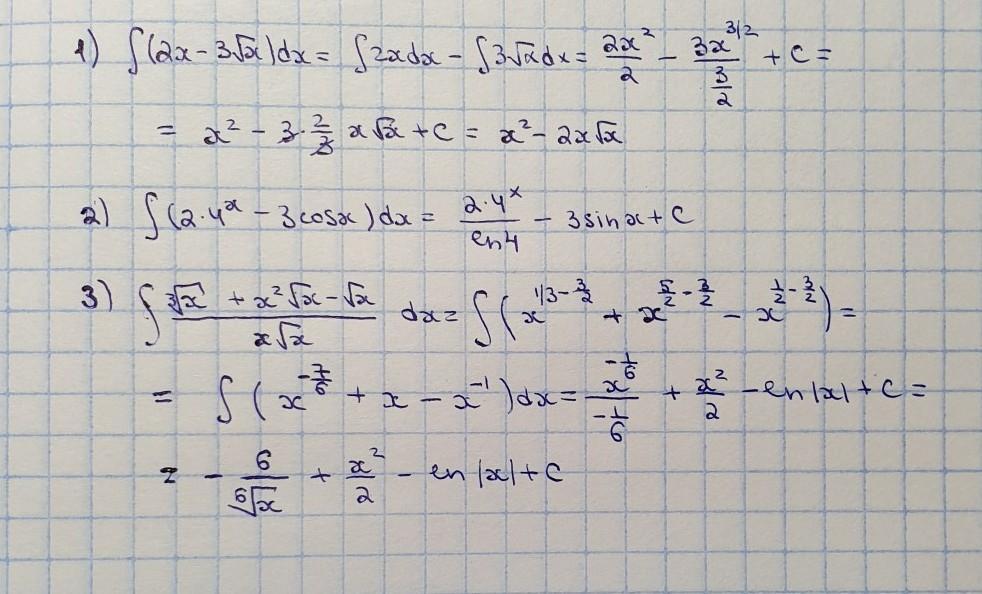 1) ∫(2x - 3√x)dx = ∫2xdx - ∫3√xdx = 2x²/2 - 3x^(3/2)/(3/2) + C =
= x² - 3·2/3 x√x + C = x² - 2x√x
2) ∫(2·4^x - 3cosx)dx = 2·4^x/ln4 - 3sinx + C
3) ∫ (∛x + x²√x - √x)/(x√x) dx = ∫(x^(1/3 - 3/2) + x^(5/2 - 3/2) - x^(1/2 - 3/2)) =
= ∫(x^(-7/6) + x - x^(-1))dx = x^(-1/6)/(-1/6) + x²/2 - ln|x| + C =
= - 6/⁶√x + x²/2 - ln|x| + C